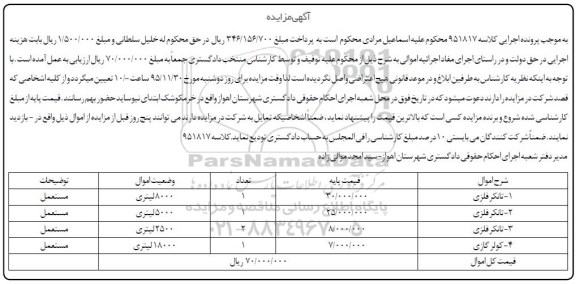 آگهی مزایده
به موجب پرونده اجرایی کلاسه ۹۵۱۸۱۷ محکوم علیه اسماعیل مرادی محکوم است به پرداخت مبلغ ۳۴۶/۱۵۶/۷۰۰ ریال در حق محکوم له خلیل سلطانی و مبلغ ۱/۵۰۰/۰۰۰ ریال بابت هزینه
اجرایی در حق دولت و در راستای اجرای مفاد اجرائیه اموالی به شرح ذیل از محکوم علیه توقیف و توسط کارشناس منتخب دادگستری جمعا به مبلغ ۷۰/۰۰۰/۰۰۰ ریال ارزیابی به عمل آمده است. با
توجه به اینکه نظریه کارشناس به طرفین ابلاغ و در موعد قانونی هیچ اعتراضی واصل نگردیده است لذا وقت مزایده برای روز دوشنبه مورخ ۹۵/۱۱/۳۰ ساعت ۱۰/۰۰ تعیین میگردد و از کلیه اشخاصی که
قصد شرکت در مزایده را دارند دعوت میشود که در تاریخ فوق در محل شعبه اجرای احکام حقوقی دادگستری شهرستان اهواز واقع در خرمکوشک ابتدای نیوساید حضور بهم رسانند. قیمت پایه از مبلغ
کارشناسی شده شروع و برنده مزایده کسی است که بالاترین قیمت را پیشنهاد نماید. ضمنا اشخاصیکه تمایل به شرکت در مزایده دارند می توانند پنج روز قبل از مزایده از اموال ذیل واقع در - بازدید
نمایند. ضمنا شرکت کنندگان می بایستی ۱۰ درصد مبلغ کارشناسی را فی المجلس به حساب دادگستری تودیع نماید. کلاسه ۹۵۱۸۱۷
مدیر دفتر شعبه اجرای احکام حقوقی دادگستری شهرستان اهواز - سید امجد موالی زاده
شرح اموال قیمت پایه تعداد وضعیت اموال توضیحات
۱- تانکر فلزی ۳۰/۰۰۰/۰۰۰ ۱ ۸۰۰۰ لیتری مستعمل
۲- تانکر فلزی ۲۵/۰۰۰/۰۰۰ ۱ ۵۰۰۰ لیتری مستعمل
۳- تانکر فلزی ۸/۰۰۰/۰۰۰ ۲ ۲۵۰۰ لیتری مستعمل
۴- کولر گازی ۷/۰۰۰/۰۰۰ ۱ ۱۸۰۰۰ لیتری مستعمل
قیمت کل اموال ۷۰/۰۰۰/۰۰۰ ریال
ParsNamadData
پایگاه اطلاع رسانی مناقصه و مزایده
۰۲۱-۸۸۳۴۹۶۷۰-۵